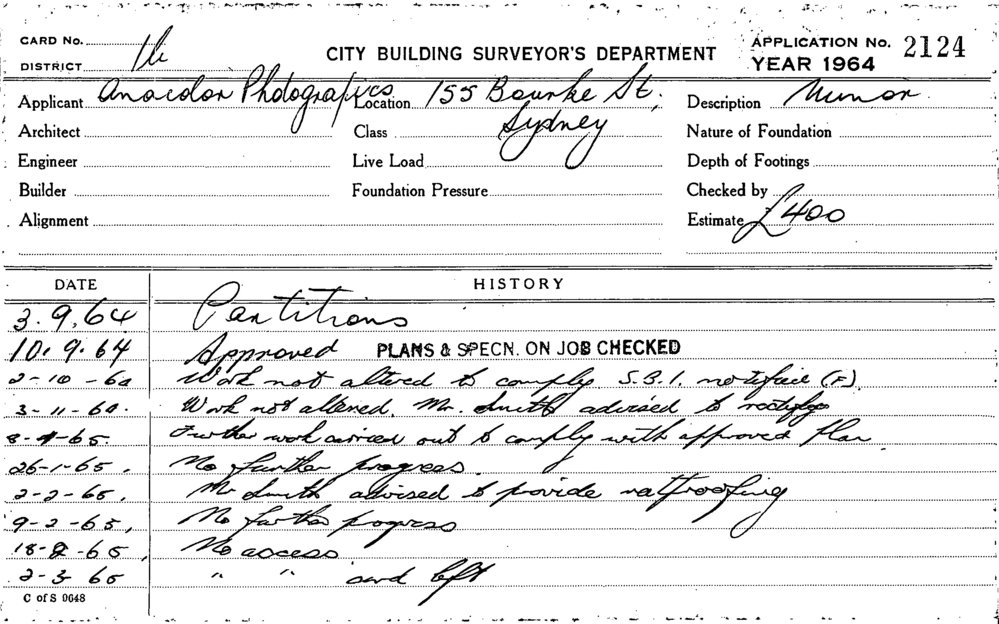 CARD No.
DISTRICT
CITY BUILDING SURVEYOR'S DEPARTMENT
APPLICATION No. 2124
YEAR 1964
Applicant Anacolor Photografics Location 155 Bourke St, Description Minor
Sydney
Architect Class Nature of Foundation
Engineer Live Load Depth of Footings
Builder Foundation Pressure Checked by
Alignment Estimate £400
DATE HISTORY
3.9.64 Partitions
10.9.64 Approved PLANS & SPECN. ON JOB CHECKED
2-10-64 Work not altered to comply S.B.I. (F)
3-11-64. Work not altered. Mr. Smith advised to rectify
Further work carried out to comply with approved plan
26-1-65. No further progress.
2-2-65. Mr Smith advised to provide ratproofing
9-2-65, No further progress
18-2-65, No access
2-3-65 " " card left
C of S 0648